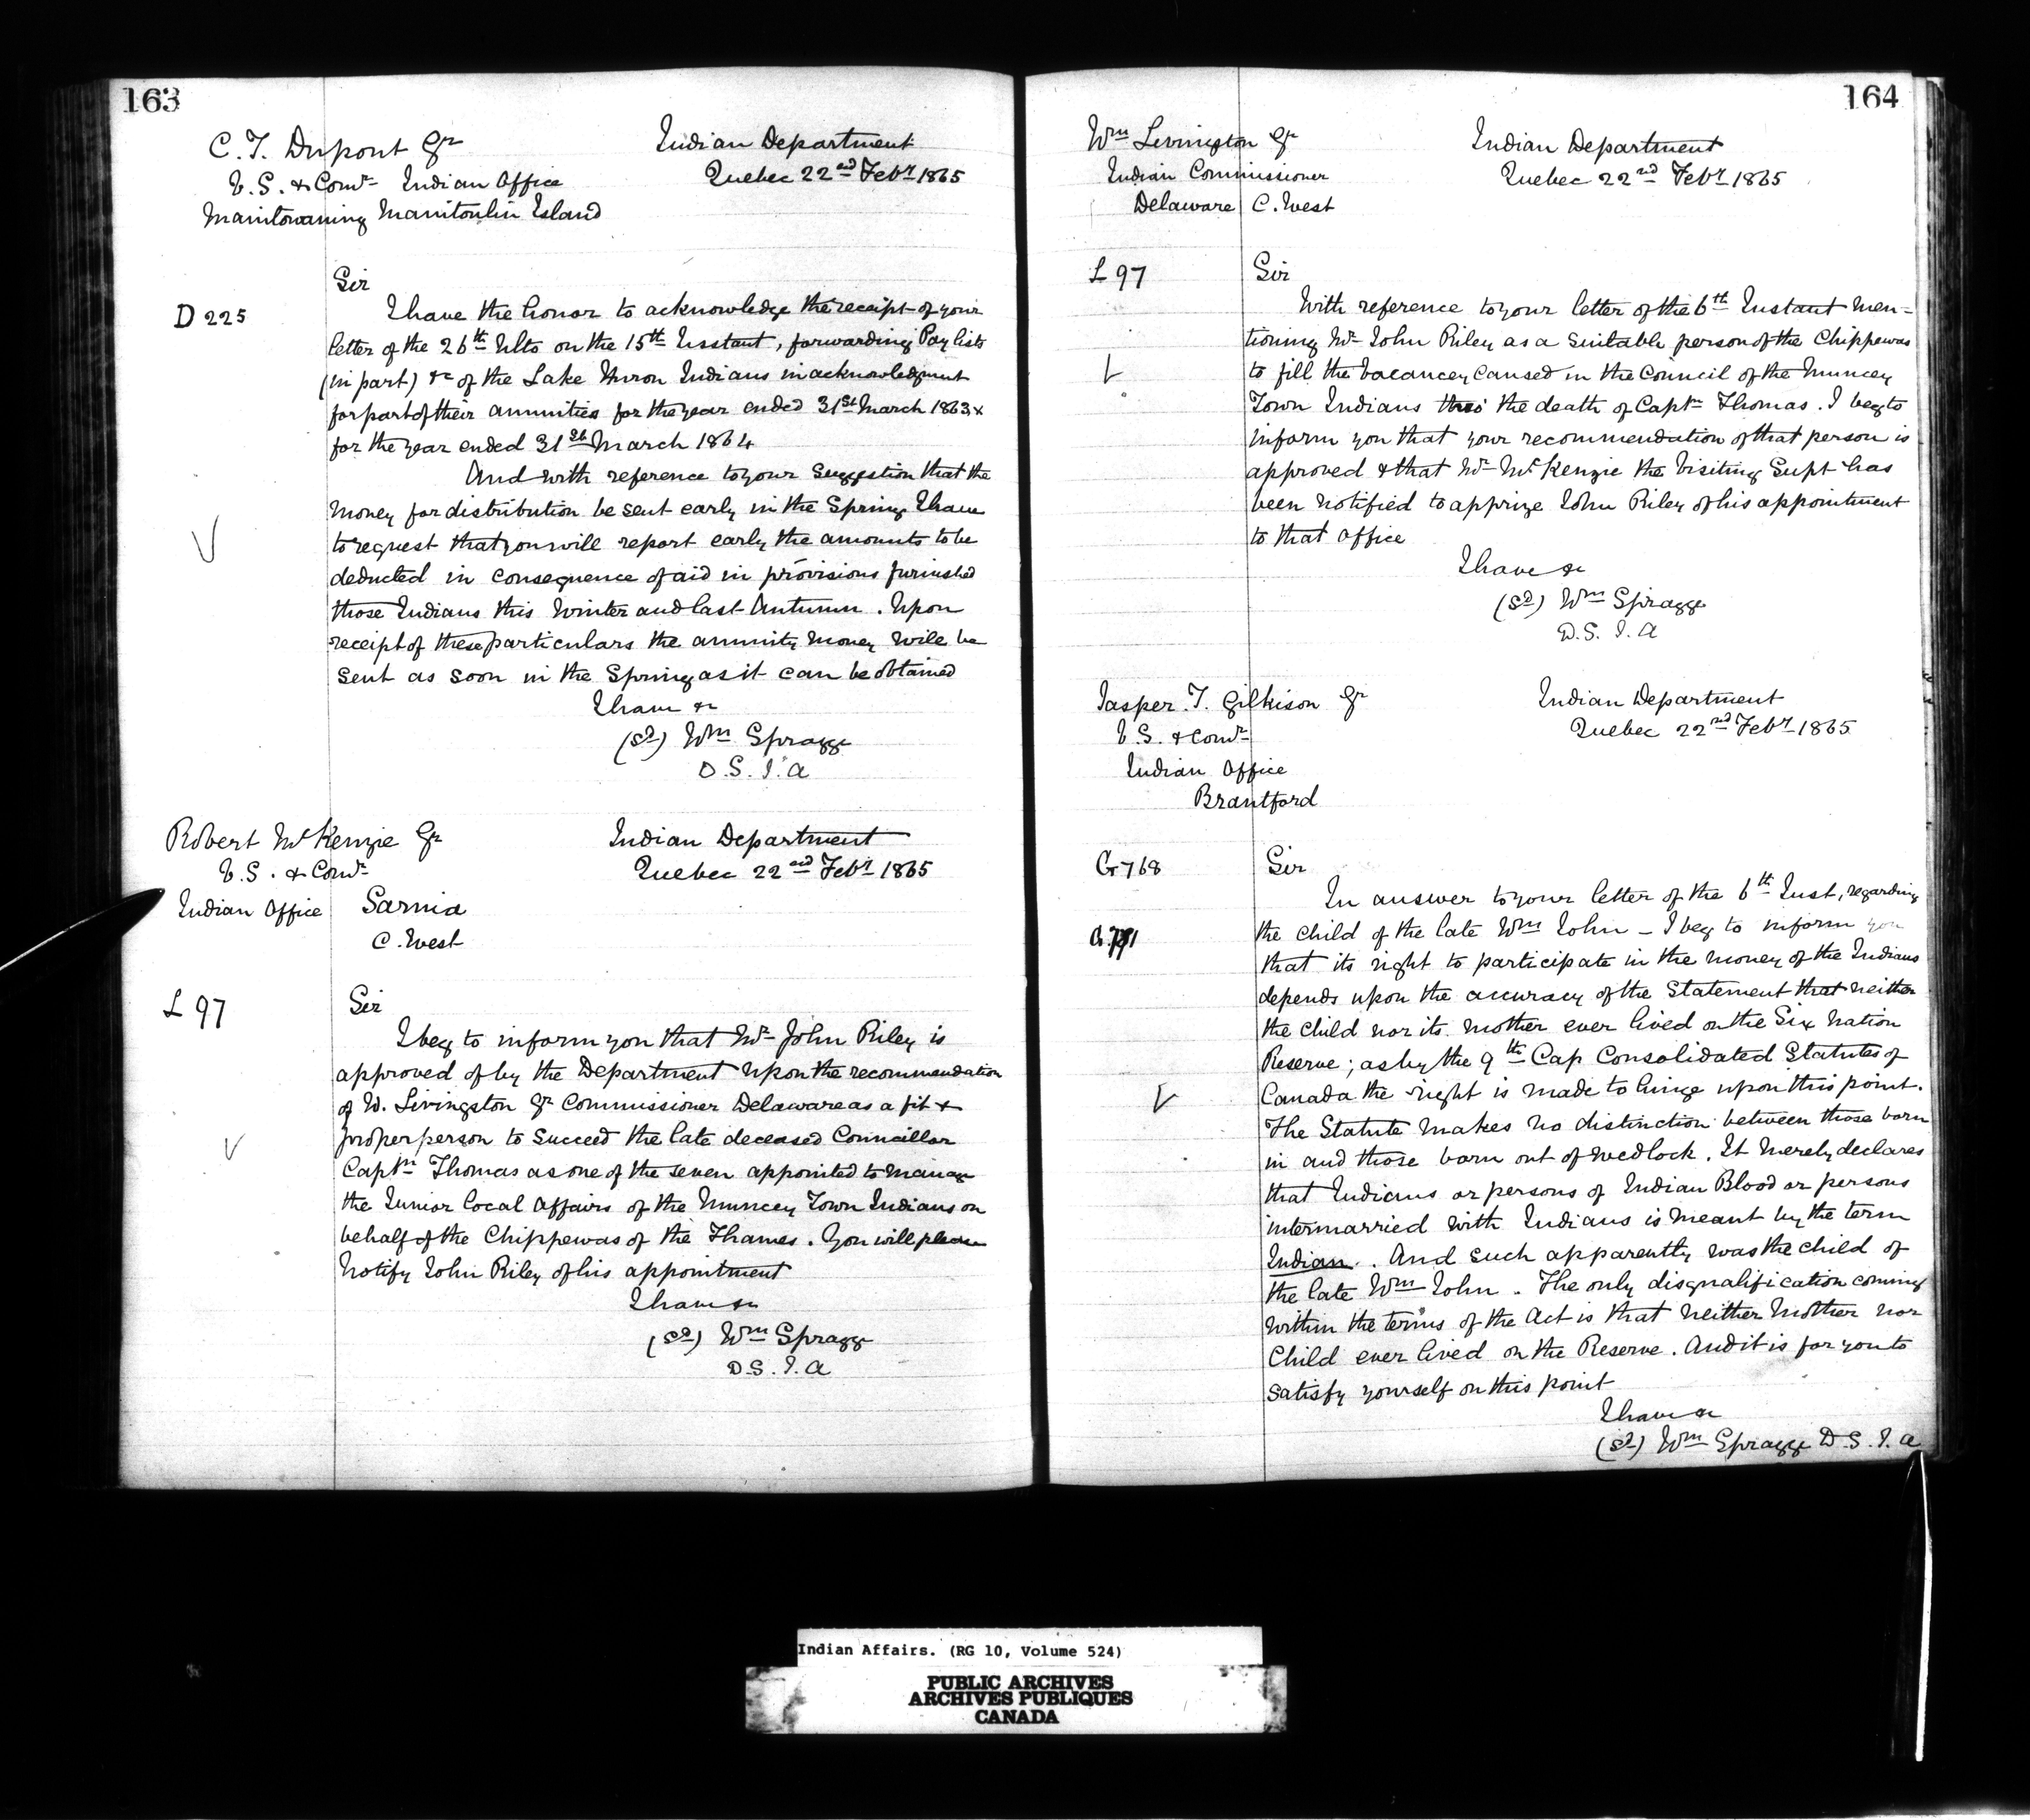 163
C. T. Dupont Esqr
V. S. & Comr Indian Office
Manitowaning Manitoulin Island
Indian Department
Quebec 22nd Feby 1865
D 225
Sir
I have the honor to acknowledge the receipt of your
letter of the 26th Ulto on the 15th Instant, forwarding Pay lists
(in part) &c of the Lake Huron Indians in acknowledgment
for part of their annuities for the year ended 31st March 1863 &
for the year ended 31st March 1864
And with reference to your suggestion that the
money for distribution be sent early in the Spring I have
to request that you will report early the amounts to be
deducted in consequence of aid in provisions furnished
those Indians this Winter and last Autumn. Upon
receipt of these particulars the annuity money will be
sent as soon in the Spring as it can be obtained
I have &c
(sd) Wm Spragge
D. S. I. A
Robert McKenzie Esqr
V. S. & Comr
Indian Office Sarnia
C. West
Indian Department
Quebec 22nd Feby 1865
L 97
Sir
I beg to inform you that Mr John Riley is
approved of by the Department upon the recommendation
of W. Livingston Esqr Commissioner Delaware as a fit &
proper person to succeed the late deceased Councillor
Captn Thomas as one of the seven appointed to manage
the Junior local affairs of the Muncey Town Indians on
behalf of the Chippewas of the Thames. You will please
notify John Riley of his appointment
I have &c
(sd) Wm Spragge
D. S. I. A
164
Wm Livingston Esqr
Indian Commissioner
Delaware C. West
Indian Department
Quebec 22nd Feby 1865
L 97
Sir
With reference to your letter of the 6th Instant men=
tioning Mr John Riley as a suitable person of the Chippewas
to fill the vacancey caused in the Council of the Muncey
Town Indians thro' the death of Captn Thomas. I beg to
inform you that your recommendation of that person is
approved & that Mr McKenzie the Visiting Supt has
been notified to apprize John Riley of his appointment
to that office
I have &c
(sd) Wm Spragge
D. S. I. A
Jasper. T. Gilkison Esqr
V. S. & Comr
Indian Office
Brantford
Indian Department
Quebec 22nd Feby 1865
G 768
Sir
In answer to your letter of the 6th Inst, regarding
the child of the late Wm John - I beg to inform you
that its right to participate in the money of the Indians
depends upon the accuracy of the Statement that neither
the child nor its mother ever lived on the Six Nation
Reserve; as by the 9th Cap Consolidated Statutes of
Canada the right is made to hinge upon this point.
The Statute makes no distinction between those born
in and those born out of wedlock. It merely declares
that Indians or persons of Indian Blood or persons
intermarried with Indians is meant by the term
Indian. And such apparently was the child of
the late Wm John. The only disqualification coming
within the terms of the Act is that neither Mother nor
Child ever lived on the Reserve. And it is for you to
satisfy yourself on this point
I have &c
(sd) Wm Spragge D. S. I. A
Indian Affairs. (RG 10, Volume 524)
PUBLIC ARCHIVES
ARCHIVES PUBLIQUES
CANADA